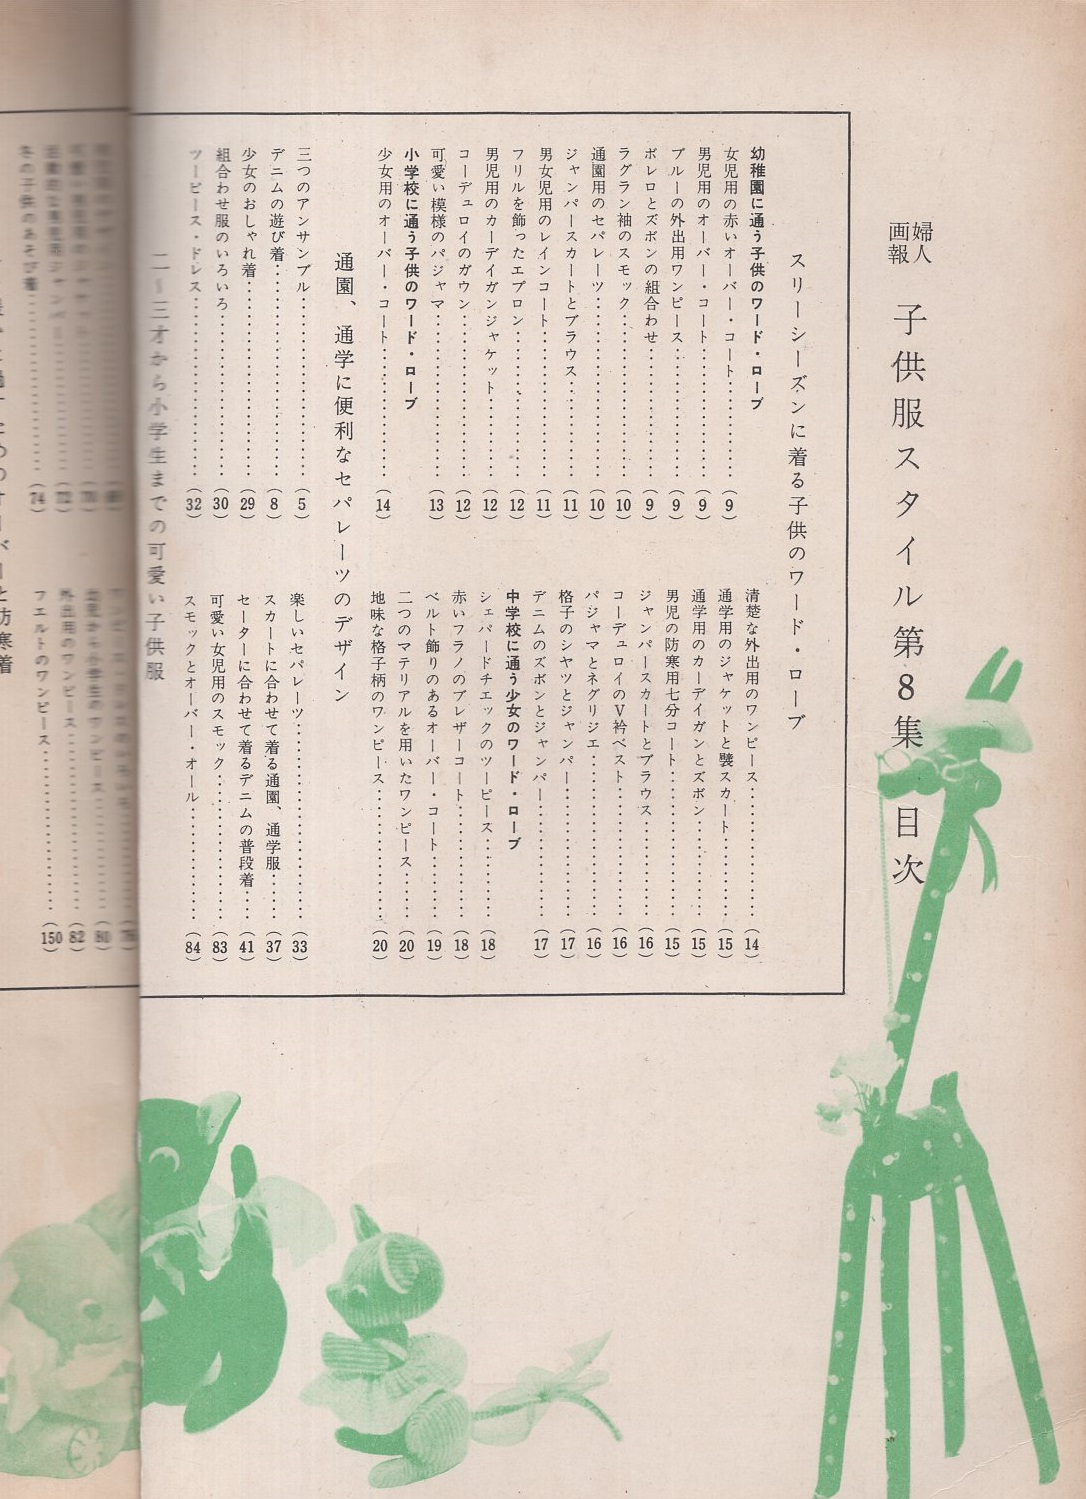 婦人画報
子供服スタイル第8集 目次
スリーシーズンに着る子供のワード・ローブ
幼稚園に通う子供のワード・ローブ
女児用の赤いオーバー・コート…………(9)
男児用のオーバー・コート…………(9)
ブルーの外出用ワンピース…………(9)
ボレロとズボンの組合わせ…………(9)
ラグラン袖のスモック…………(10)
通園用のセパレーツ…………(10)
ジャンパースカートとブラウス…………(11)
男女児用のレインコート…………(11)
フリルを飾ったエプロン…………(12)
男児用のカーデイガンジャケット…………(12)
コーデュロイのガウン…………(12)
可愛い模様のパジャマ…………(13)
小学校に通う子供のワード・ローブ
少女用のオーバー・コート…………(14)
清楚な外出用のワンピース…………(14)
通学用のジャケットと襞スカート…………(15)
通学用のカーデイガンとズボン…………(15)
男児の防寒用七分コート…………(15)
ジャンパースカートとブラウス…………(16)
コーデュロイのV衿ベスト…………(16)
パジャマとネグリジエ…………(16)
格子のシヤツとジャンパー…………(17)
デニムのズボンとジャンパー…………(17)
中学校に通う少女のワード・ローブ
シェパードチエックのツーピース…………(18)
赤いフラノのブレザーコート…………(18)
ベルト飾りのあるオーバー・コート…………(19)
二つのマテリアルを用いたワンピース…………(20)
地味な格子柄のワンピース…………(20)
通園、通学に便利なセパレーツのデザイン
三つのアンサンブル…………(5)
デニムの遊び着…………(8)
少女のおしゃれ着…………(29)
組合わせ服のいろいろ…………(30)
ツーピース・ドレス…………(32)
楽しいセパレーツ…………(33)
スカートに合わせて着る通園、通学服…………(37)
セーターに合わせて着るデニムの普段着…………(41)
可愛い女児用のスモック…………(83)
スモックとオーバー・オール…………(84)
二〜三才から小学生までの可愛い子供服
(72)
冬の子供のあそび着…………(74)
(80)
外出用のワンピース…………(82)
フエルトのワンピース…………(150)